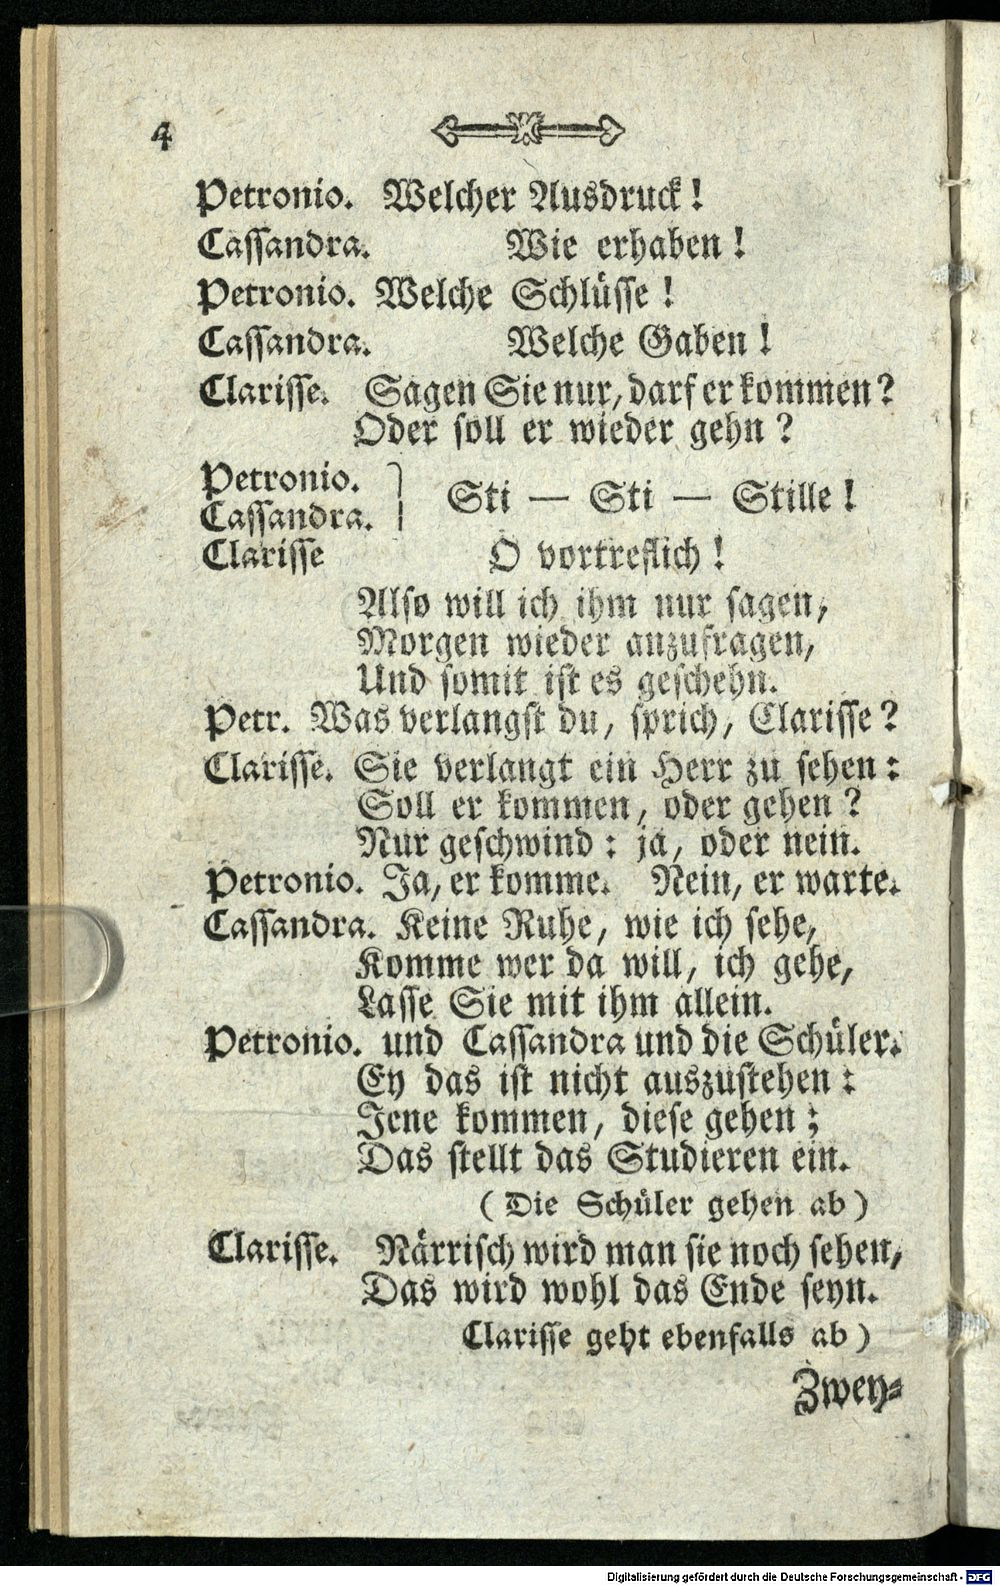 4
Petronio. Welcher Ausdruck!
Cassandra. Wie erhaben!
Petronio. Welche Schlüsse!
Cassandra. Welche Gaben!
Clarisse. Sagen Sie nur, darf er kommen?
Oder soll er wieder gehn?
Petronio.
Cassandra. } Sti — Sti — Stille!
Clarisse O vortreflich!
Also will ich ihm nur sagen,
Morgen wieder anzufragen,
Und somit ist es geschehn.
Petr. Was verlangst du, sprich, Clarisse?
Clarisse. Sie verlangt ein Herr zu sehen:
Soll er kommen, oder gehen?
Nur geschwind: ja, oder nein.
Petronio. Ja, er komme. Nein, er warte.
Cassandra. Keine Ruhe, wie ich sehe,
Komme wer da will, ich gehe,
Lasse Sie mit ihm allein.
Petronio. und Cassandra und die Schüler.
Ey das ist nicht auszustehen:
Jene kommen, diese gehen;
Das stellt das Studieren ein.
(Die Schüler gehen ab)
Clarisse. Närrisch wird man sie noch sehen,
Das wird wohl das Ende seyn.
Clarisse geht ebenfalls ab)
Zwey-
Digitalisierung gefördert durch die Deutsche Forschungsgemeinschaft - DFG